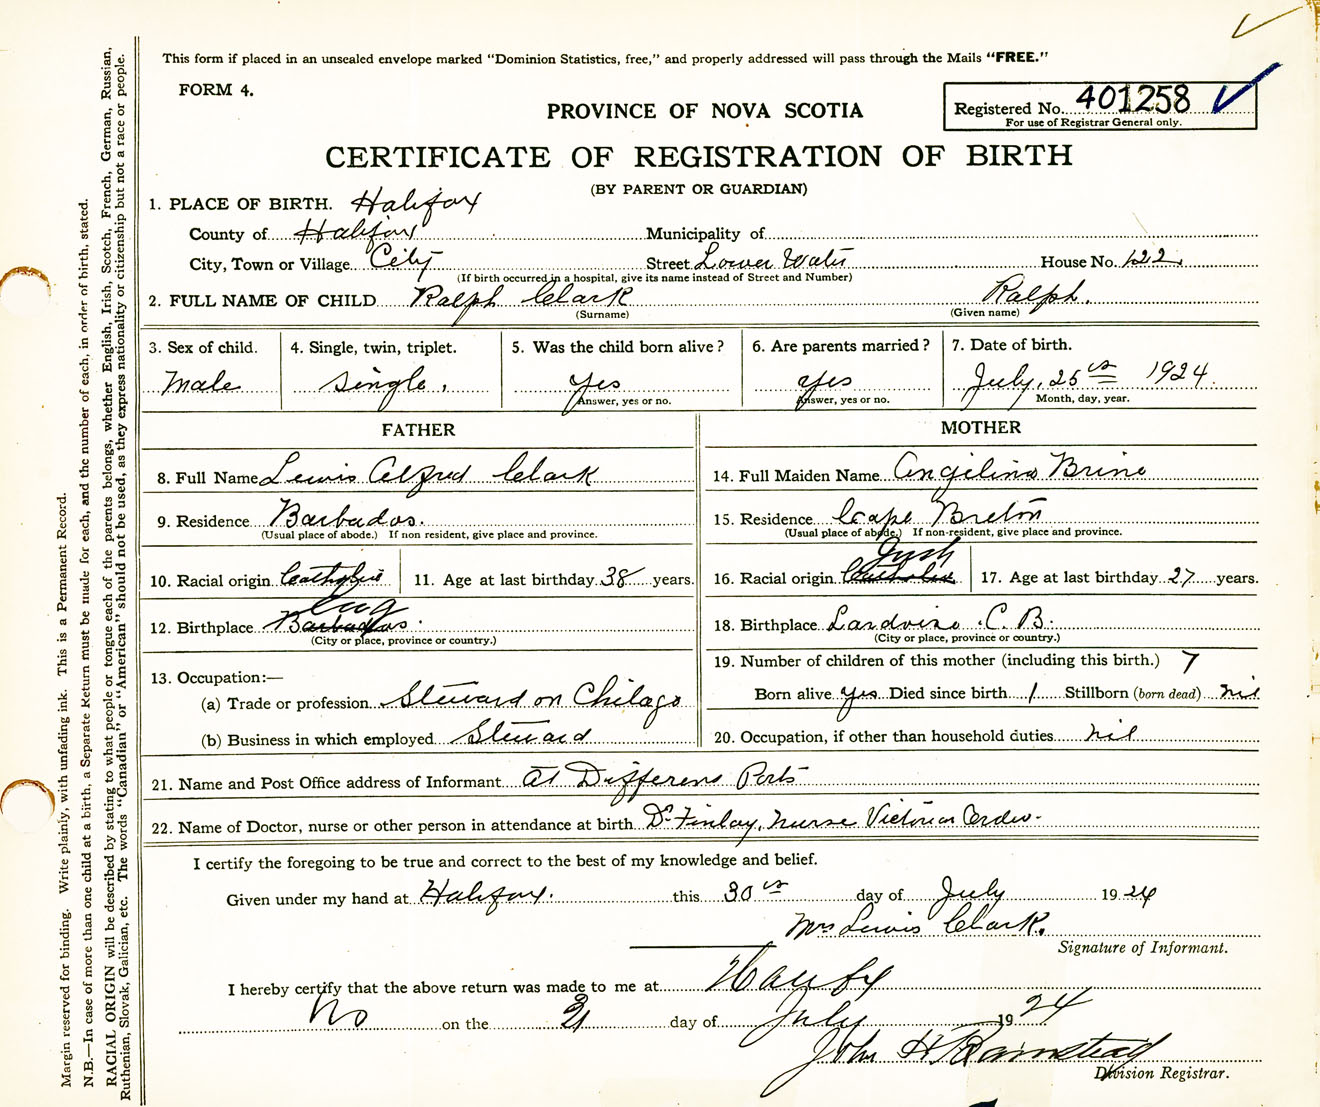 This form if placed in an unsealed envelope marked "Dominion Statistics, free," and properly addressed will pass through the Mails "FREE."
FORM 4.
Registered No. 401258
For use of Registrar General only.
PROVINCE OF NOVA SCOTIA
CERTIFICATE OF REGISTRATION OF BIRTH
(BY PARENT OR GUARDIAN)
1. PLACE OF BIRTH. Halifax
County of Halifax Municipality of
City, Town or Village City Street Lower Water House No. 122
(If birth occurred in a hospital, give its name instead of Street and Number)
2. FULL NAME OF CHILD Ralph Clark Ralph.
(Surname) (Given name)
3. Sex of child. 4. Single, twin, triplet. 5. Was the child born alive? 6. Are parents married? 7. Date of birth.
Male single. yes yes July, 25 1924.
Answer, yes or no. Answer, yes or no. Month, day, year.
FATHER
8. Full Name Lewis Alfred Clark
9. Residence Barbados.
(Usual place of abode.) If non resident, give place and province.
10. Racial origin Catholic 11. Age at last birthday 38 years.
12. Birthplace Barbados.
(City or place, province or country.)
13. Occupation:—
(a) Trade or profession Steward on
(b) Business in which employed Steward
MOTHER
14. Full Maiden Name Angelina Brine
15. Residence Cape Breton
(Usual place of abode.) If non-resident, give place and province.
16. Racial origin Catholic 17. Age at last birthday 27 years.
18. Birthplace C. B.
(City or place, province or country.)
19. Number of children of this mother (including this birth.) 7
Born alive yes Died since birth 1 Stillborn (born dead) nil
20. Occupation, if other than household duties nil
21. Name and Post Office address of Informant At Different Ports
22. Name of Doctor, nurse or other person in attendance at birth Dr Finlay, Nurse Victorian Order
I certify the foregoing to be true and correct to the best of my knowledge and belief.
Given under my hand at Halifax. this 30 day of July 1924
Mrs Lewis Clark.
Signature of Informant.
I hereby certify that the above return was made to me at
No on the 31 day of July 1924
John H
Division Registrar.
Margin reserved for binding. Write plainly, with unfading ink. This is a Permanent Record.
N.B.—In case of more than one child at a birth, a Separate Return must be made for each, and the number of each, in order of birth, stated.
RACIAL ORIGIN will be described by stating to what people or tongue each of the parents belongs, whether English, Irish, Scotch, French, German, Russian,
Ruthenian, Slovak, Galician, etc. The words "Canadian" or "American" should not be used, as they express nationality or citizenship but not a race or people.